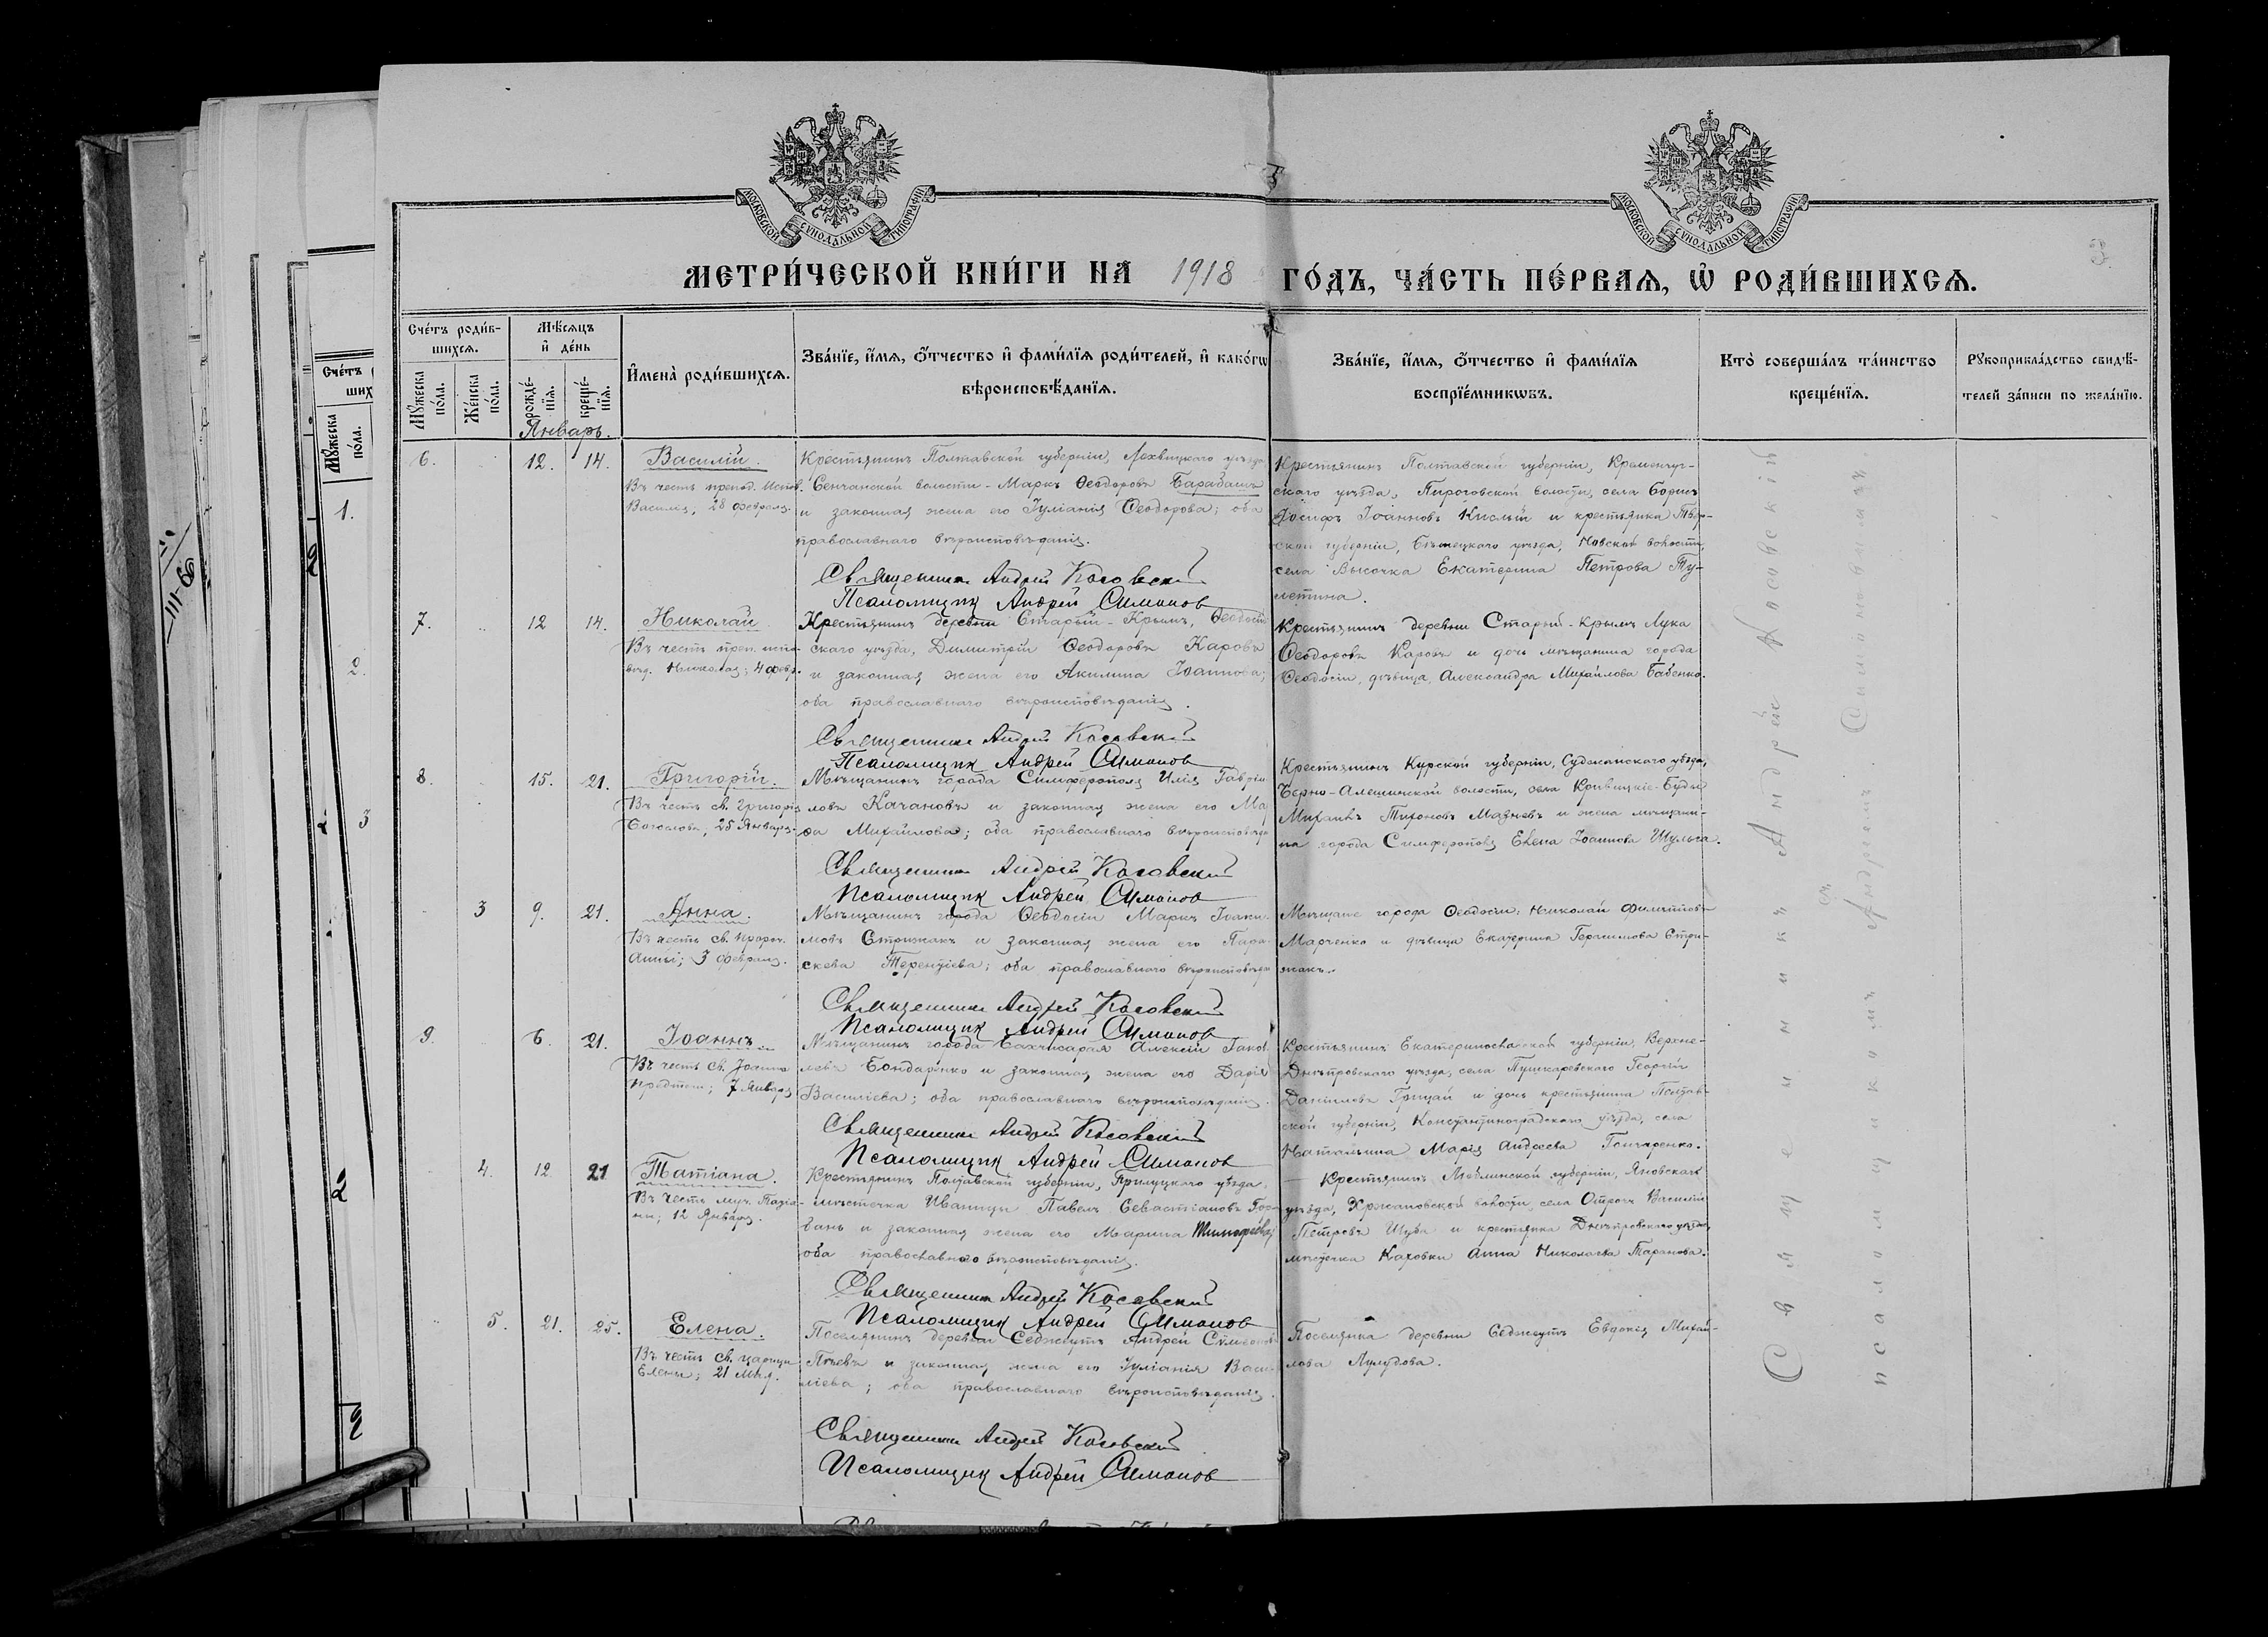 МОСКОВСКОЙ СѴНОДАЛЬНОЙ ТИПОГРАФІИ
МОСКОВСКОЙ СѴНОДАЛЬНОЙ ТИПОГРАФІИ
МЕТРИ́ЧЕСКОЙ КНИ́ГИ НА 1918 ГО́ДЪ, ЧА́СТЬ ПЕ́РВАѦ, Ѡ РОДИ́ВШИХСѦ.
3
Сче́тъ роди́в-
шихсѧ.
Мꙋ́жеска по́ла.
Же́нска по́ла.
Мѣ́сѧцъ
и҆ де́нь
рожде́-
нїѧ.
креще́-
нїѧ.
И҆мена̀ роди́вшихсѧ.
Зва́нїе, и҆́мѧ, ѻ҆́тчество и҆ фами́лїѧ роди́телей, и҆ како́гѡ
вѣроисповѣ́данїѧ.
Зва́нїе, и҆́мѧ, ѻ҆́тчество и҆ фами́лїѧ
воспрїе́мникѡвъ.
Кто̀ соверша́лъ та́инство
креще́нїѧ.
Рꙋкоприкла́дство свидѣ́-
телей за́писи по жела́нїю.
Январь.
6. 12. 14. Василій.
Въ честь препод. Испов.
Василія, 28 февраля.
Крестьянинъ Полтавской губерніи, Лохвицкаго уѣзда
Сенчанской волости - Маркъ Ѳеодоровъ Барабашъ
и законная жена его Іуліанія Ѳеодорова; оба
православнаго вѣроисповѣданія.
Священник Андрей Косовский
Псаломщик Андрей Симонов
Крестьянинъ Полтавской губерніи, Кременчуг-
скаго уѣзда, Пироговской волости, села Борисъ
Іосифъ Іоанновъ Кислый и крестьянка Твер-
ской губерніи, Бѣжецкаго уѣзда, волости,
села Высочка Екатерина Петрова Ту-
летина.
7. 12 14. Николай
Въ честь преп. испо-
вѣд. Николая; 4 февр.
Крестьянинъ деревни Старый-Крымъ, Ѳеодосій-
скаго уѣзда, Димитрій Ѳеодоровъ Каровъ
и законная жена его Акилина Іоаннова;
оба православнаго вѣроисповѣданія.
Священник Андрей Косовский
Псаломщик Андрей Симонов
Крестьянинъ деревни Старый-Крымъ Лука
Ѳеодоровъ Каровъ и дочь мѣщанина города
Ѳеодосіи, дѣвица, Александра Михайлова Бабенко.
8. 15. 21. Григорій.
Въ честь св. Григорія
Богослова; 25 Января.
Мѣщанинъ города Симферополя Илія Гавріи-
ловъ Качановъ и законная жена его Ма
Михайлова; оба православнаго вѣроисповѣда
Священник Андрей Косовский
Псаломщик Андрей Симонов
Крестьянинъ Курской губерніи, Суджанскаго уѣзда,
Черно-Алешинской волости, села Кривицкіе-Буды
Михаилъ Тихоновъ Мазневъ и жена мѣщани-
на города Симферополя Елена Іоаннова Шульга.
3 9. 21. Анна.
Въ честь св. Пророч.
Анны; 3 февраля.
Мѣщанинъ города Ѳеодосіи Маркъ Іоаки-
мовъ Стрижакъ и законная жена его Пара-
скева Терентіева; оба православнаго вѣроисповѣда
Священник Андрей Косовский
Псаломщик Андрей Симонов
Мѣщане города Ѳеодосіи: Николай Филипповъ
Марченко и дѣвица Екатерина Герасимова Стри-
жакъ.
9. 6. 21. Іоаннъ.
Въ честь св. Іоанна
Предтечи; 7 Января
Мѣщанинъ города Бахчисарая Алексій Іаков-
левъ Бондаренко и законная жена его Дарія
Василіева; оба православнаго вѣроисповѣданія.
Священник Андрей Косовский
Псаломщик Андрей Симонов
Крестьянинъ Екатеринославской губерніи, Верхне-
Днѣпровскаго уѣзда, села Пушкаревскаго Георгій
Даніиловъ Грицай и дочь крестьянина Полтав-
ской губерніи, Константиноградскаго уѣзда, села
Натальина Марія Андреева Гончаренко.
4. 12 21 Татіана.
Въ честь муч. Татіа-
ны; 12 Января.
Крестьянинъ Полтавской губерніи, Прилуцкаго уѣзда,
мѣстечка Иваницы Павелъ Севастіановъ Гор-
бань и законная жена его Марина Тимоѳеева;
оба православнаго вѣроисповѣданія.
Священник Андрей Косовский
Псаломщик Андрей Симонов
Крестьянинъ Люблинской губерніи, Яновскаго
уѣзда, Хржановской волости, села Отрочъ Василій
Петровъ Шуба и крестьянка Днѣпровскаго уѣзда,
мѣстечка Каховки Анна Николаева Таранова.
5. 21. 25. Елена.
Въ честь св. царицы
Елены; 21 Мая.
Поселянинъ деревни Седжеутъ Андрей Сѵмеоновъ
и законная жена его Іуліанія Васи-
ліева; оба православнаго вѣроисповѣданія.
Священник Андрей Косовский
Псаломщик Андрей Симонов
Поселянка деревни Седжеутъ Евдокія Михай-
лова Лулудова.
Священникъ Андрей Косовскій
съ
псаломщикомъ Андреемъ Симоновымъ
Сче́тъ
ших
Мꙋ́жеска по́ла.
1.
2.
3
2